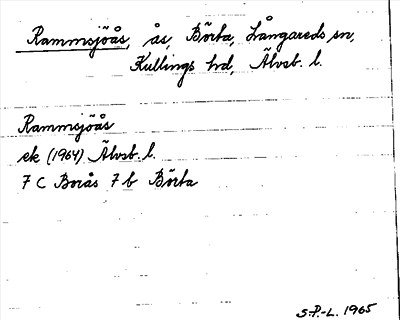 Rammsjöås, ås, Börta, Långareds sn,
Kullings hd, Älvsb. l.
Rammsjöås
ek (1964) Älvsb. l.
7 C Borås 7 b Börta
S.P.-L. 1965